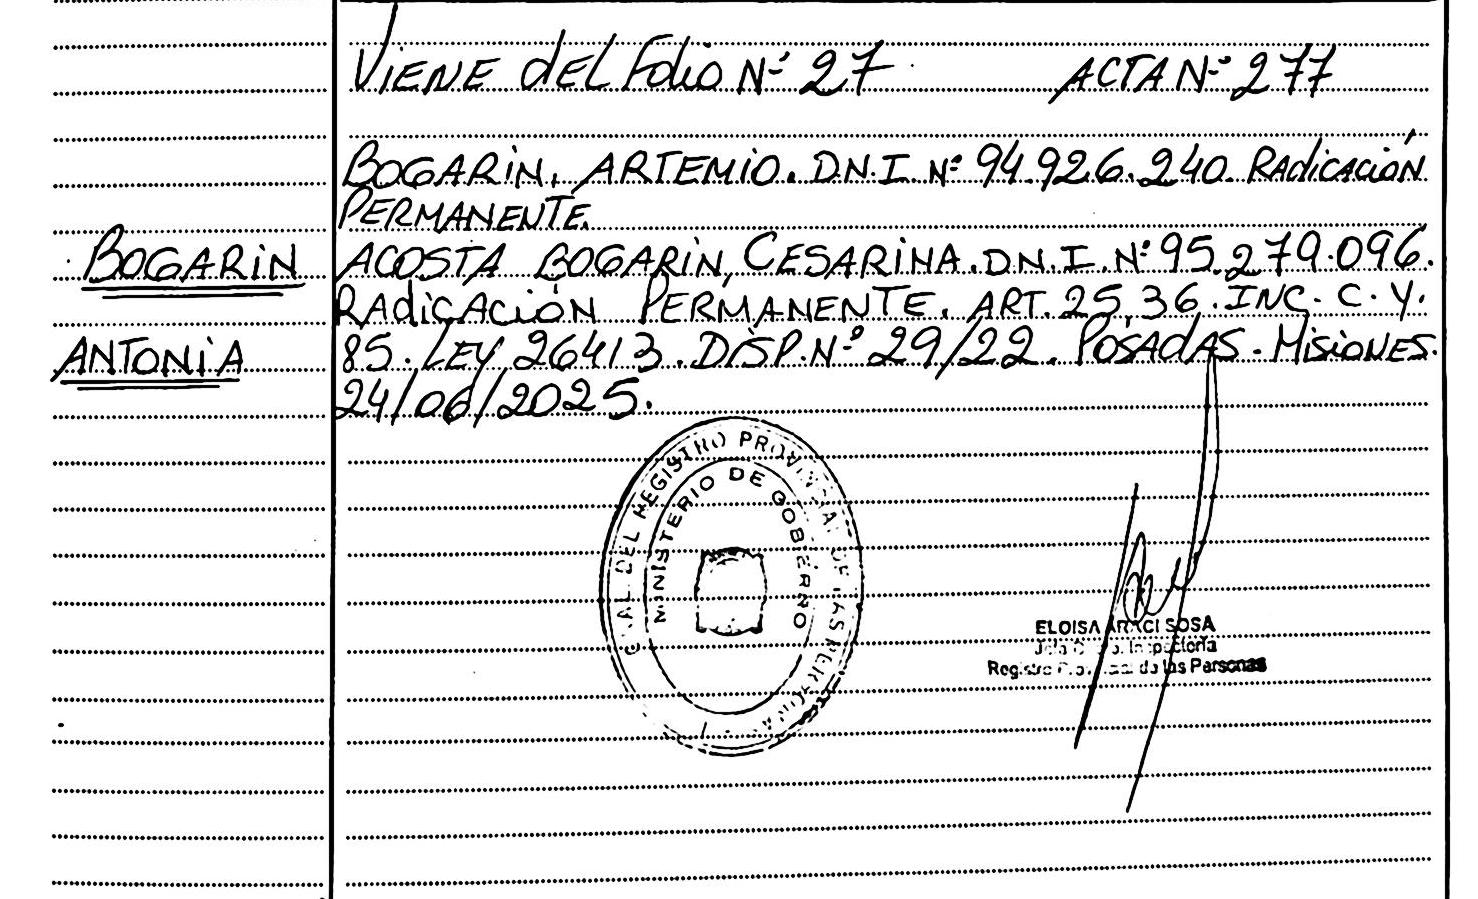 VIENE dEL Folio Nº 27 ACTA Nº 277
BOGARIN, ARTEMIO. D.N.I. Nº 94.926.240. RAdicACióN
PERMANENTE.
BOGARIN
ACOSTA BOGARIN, CESARINA. D.N.I. Nº 95.279.096.
RAdicACióN PERMANENTE. ART. 25, 36. INC. C. Y.
ANTONIA
85. LEY 26413. DISP. Nº 29/22. POSAdAS. MISIONES.
24/06/2025.
GRAL DEL REGISTRO PROVINCIAL DE LAS PERSONAS
MINISTERIO DE GOBIERNO
ELOISA ARACI SOSA
Inspectoría
Registro Provincial de las Personas